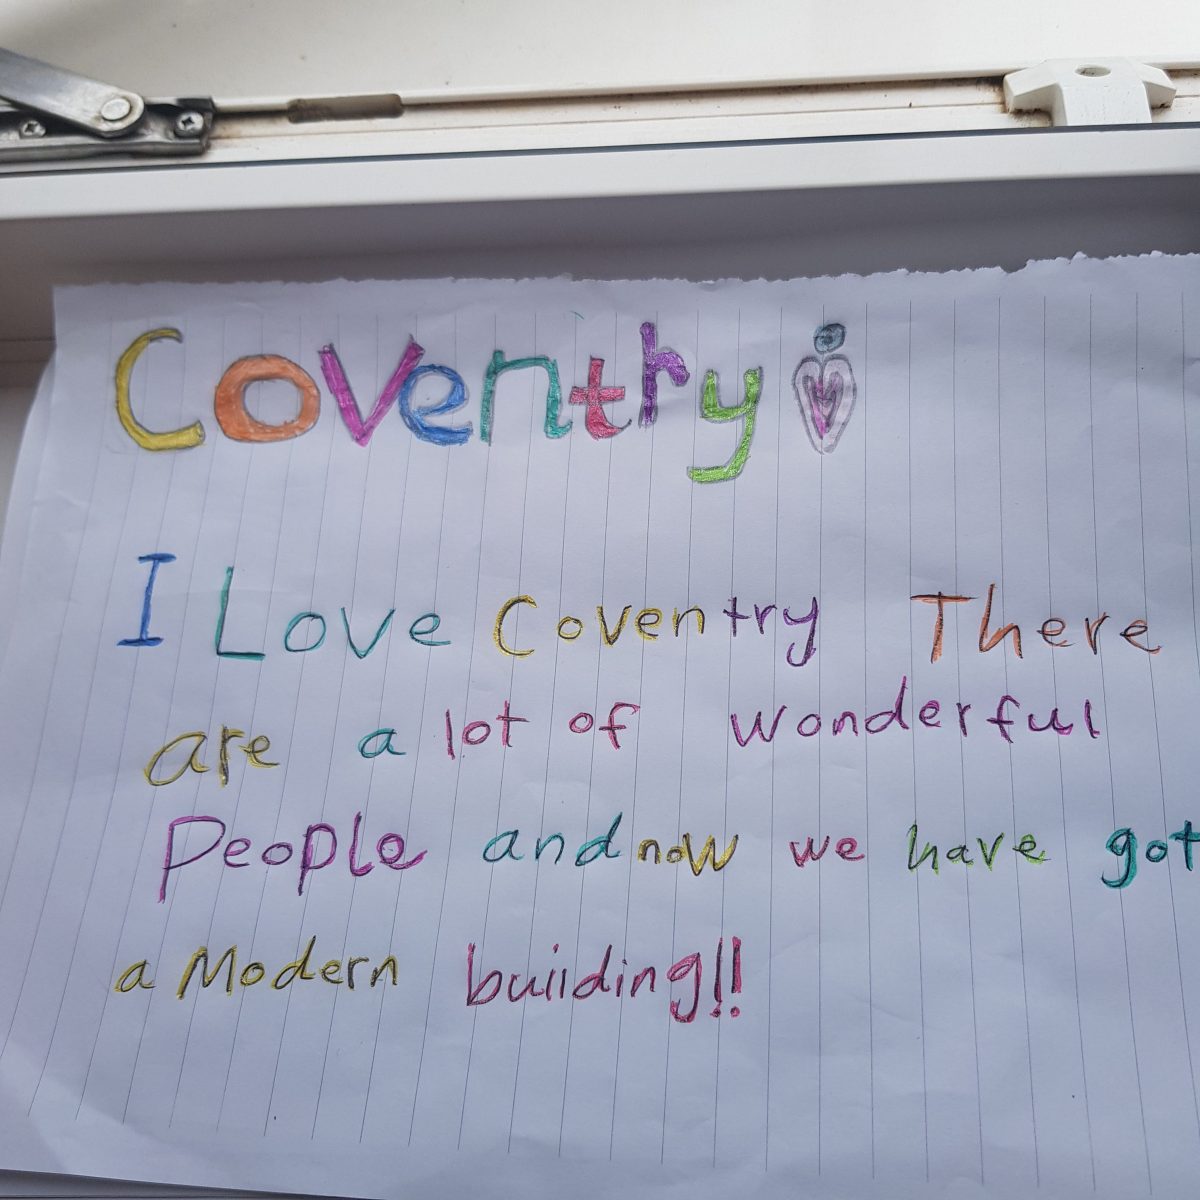 Coventry
I Love Coventry There
are a lot of wonderful
People and now we have got
a Modern building!!